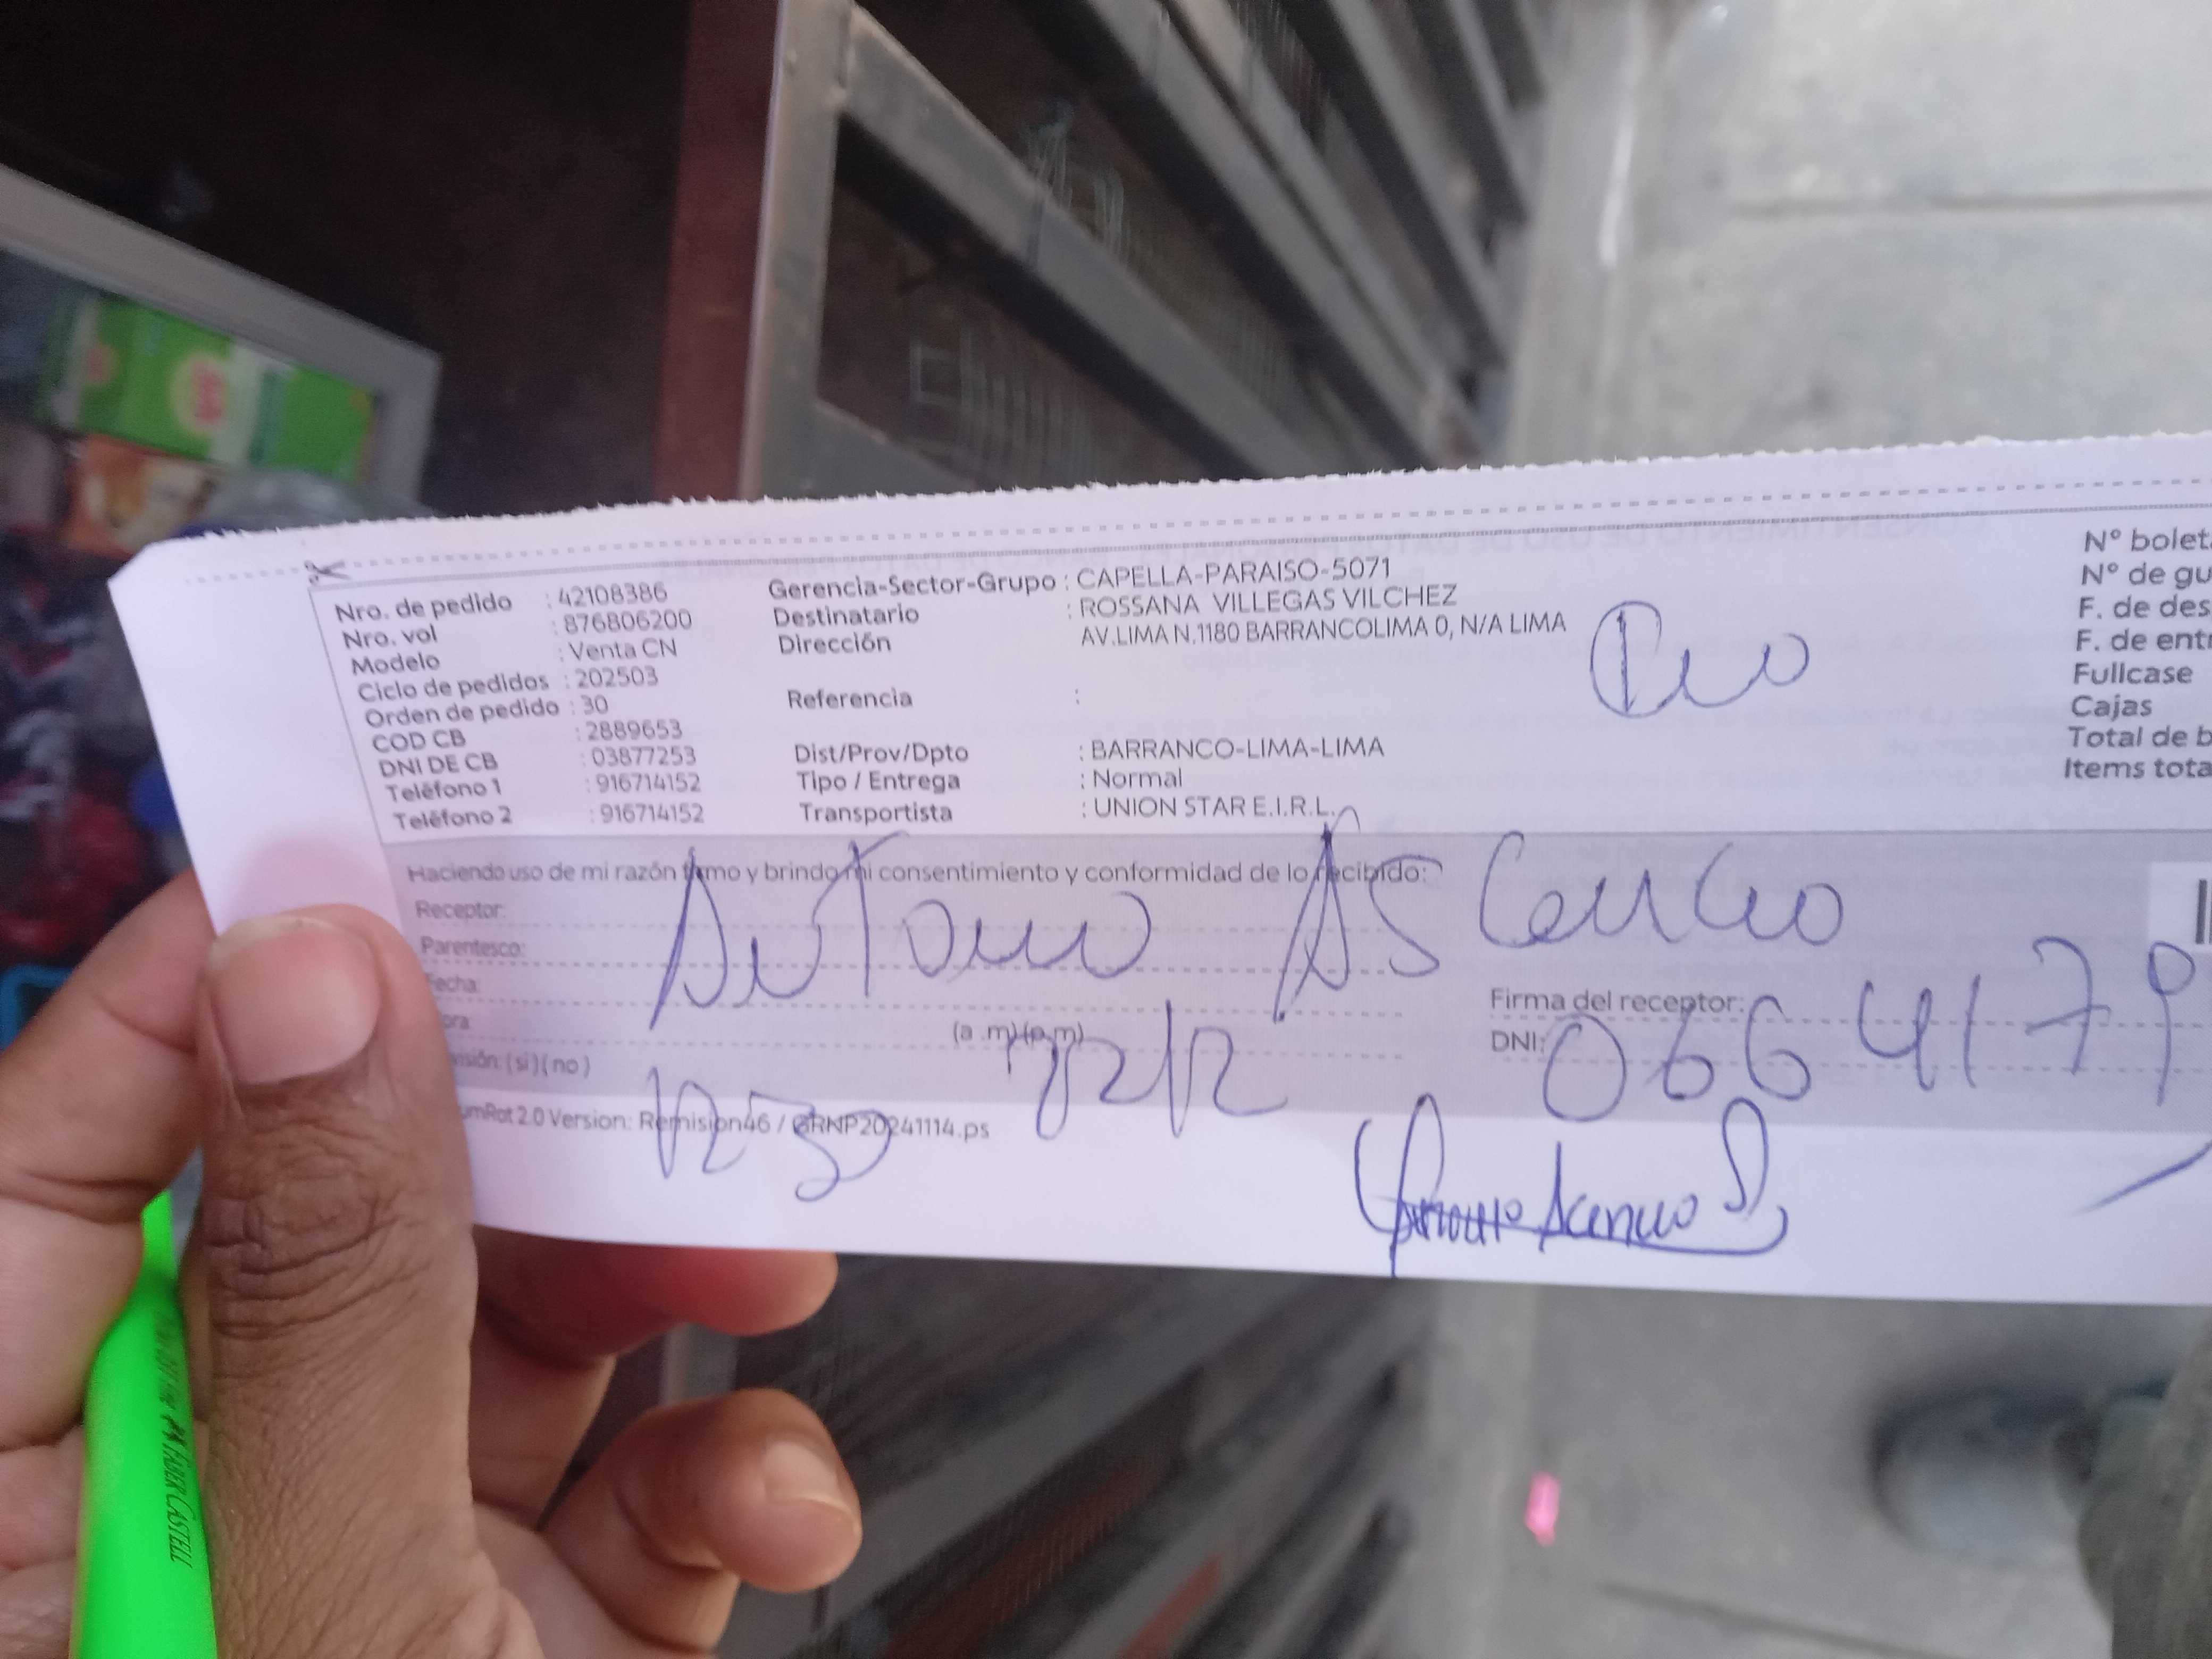 Nro. de pedido : 42108386
Nro. vol : 876806200
Modelo : Venta CN
Ciclo de pedidos : 202503
Orden de pedido : 30
COD CB : 2889653
DNI DE CB : 03877253
Teléfono 1 : 916714152
Teléfono 2 : 916714152
Gerencia-Sector-Grupo : CAPELLA-PARAISO-5071
Destinatario : ROSSANA VILLEGAS VILCHEZ
Dirección AV.LIMA N.1180 BARRANCOLIMA 0, N/A LIMA
Referencia :
Dist/Prov/Dpto : BARRANCO-LIMA-LIMA
Tipo / Entrega : Normal
Transportista : UNION STAR E.I.R.L.
N° bolet
N° de gu
F. de des
F. de ent
Fullcase
Cajas
Total de b
Items tota
Haciendo uso de mi razón firmo y brindo mi consentimiento y conformidad de lo recibido:
Receptor:
Antonio Ascencio
Parentesco:
echa:
ora:
(a .m) (p.m)
isión: ( si ) ( no )
Firma del receptor:
DNI: 0664179
12/12
1230
umRot 2.0 Version: Remision46 / GRNP20241114.ps
FABER CASTELL